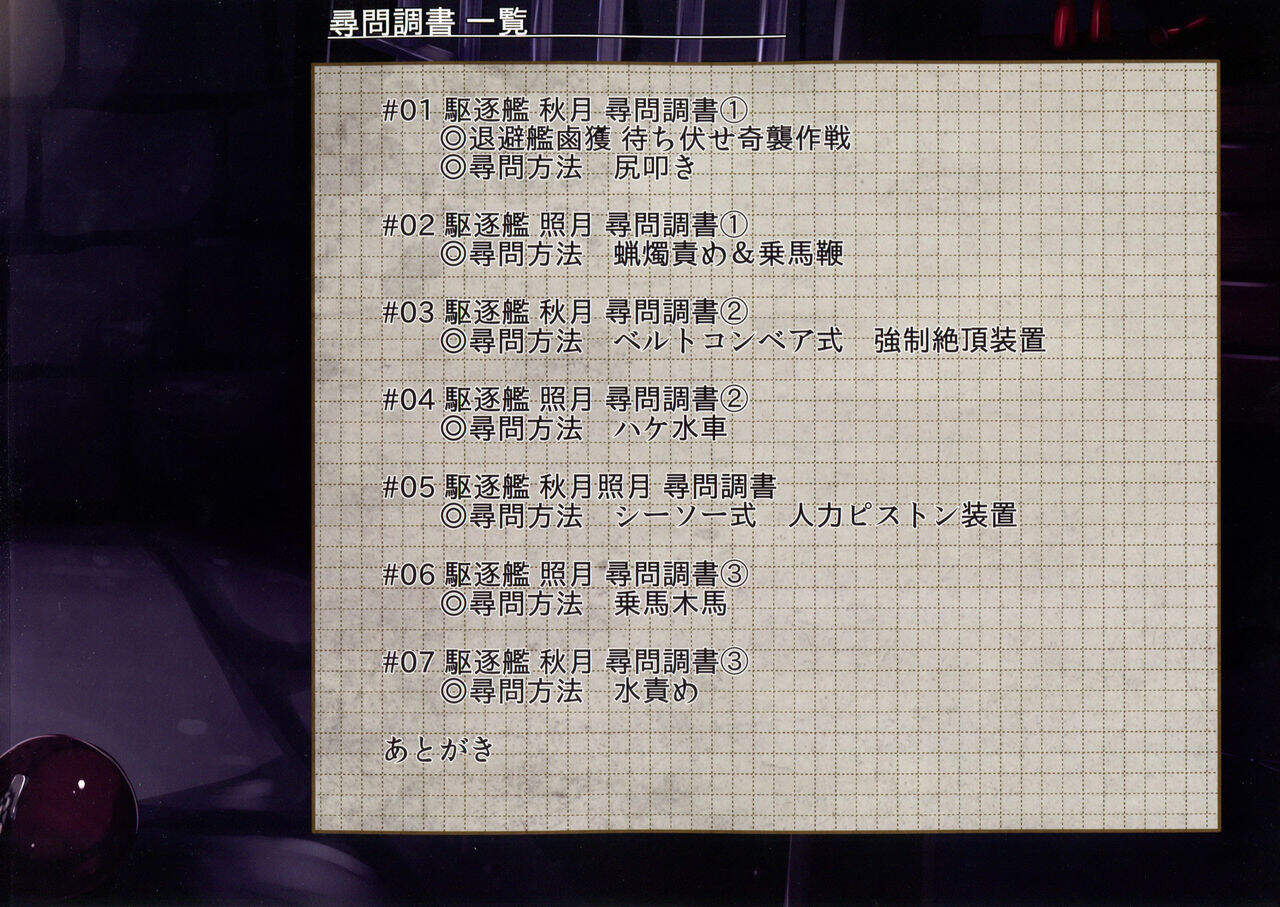 尋問調書 一覧
#01 駆逐艦 秋月 尋問調書①
◎退避艦鹵獲 待ち伏せ奇襲作戦
◎尋問方法　尻叩き
#02 駆逐艦 照月 尋問調書①
◎尋問方法　蝋燭責め＆乗馬鞭
#03 駆逐艦 秋月 尋問調書②
◎尋問方法　ベルトコンベア式　強制絶頂装置
#04 駆逐艦 照月 尋問調書②
◎尋問方法　ハケ水車
#05 駆逐艦 秋月照月 尋問調書
◎尋問方法　シーソー式　人力ピストン装置
#06 駆逐艦 照月 尋問調書③
◎尋問方法　乗馬木馬
#07 駆逐艦 秋月 尋問調書③
◎尋問方法　水責め
あとがき